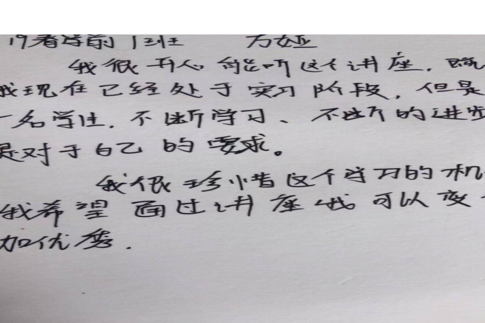 19看学前1班 方娅
我很开心能听这个讲座，
我现在已经处于实习阶段，但是
一名学生，不断学习、不断的进步
是对于自己的要求。
我很珍惜这个学习的机
我希望通过讲座我可以变
加优秀.